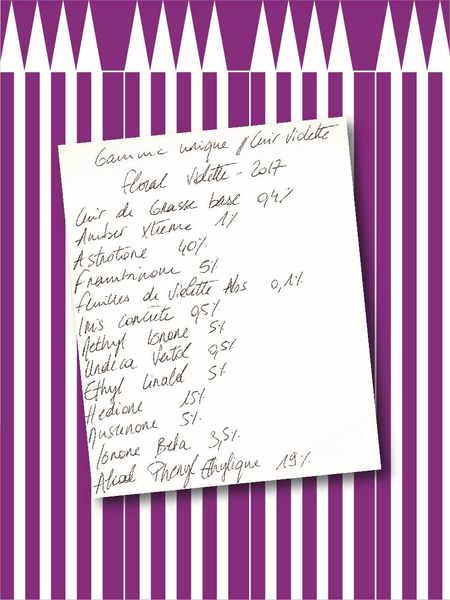 Gamme unique / Cuir Violette
Floral Violette - 2017
Cuir de Grasse base 0,4%
Amber Xtreme 1%
Astrotone 40%
Frambinone 5%
Feuilles de Violette Abs 0,1%
Iris concrète 0,5%
Methyl Ionone 5%
Undeca Vertol 0,5%
Ethyl Linalol 5%
Hedione 15%
Muscenone 5%
Ionone Beta 3,5%
Alcool Phenyl Ethylique 19%